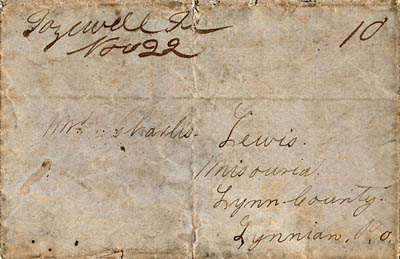 Tazewell Te
Nov 22
10
Mr. Charles Lewis.
Misouria.
Lynn County.
Lynnian, P.o.